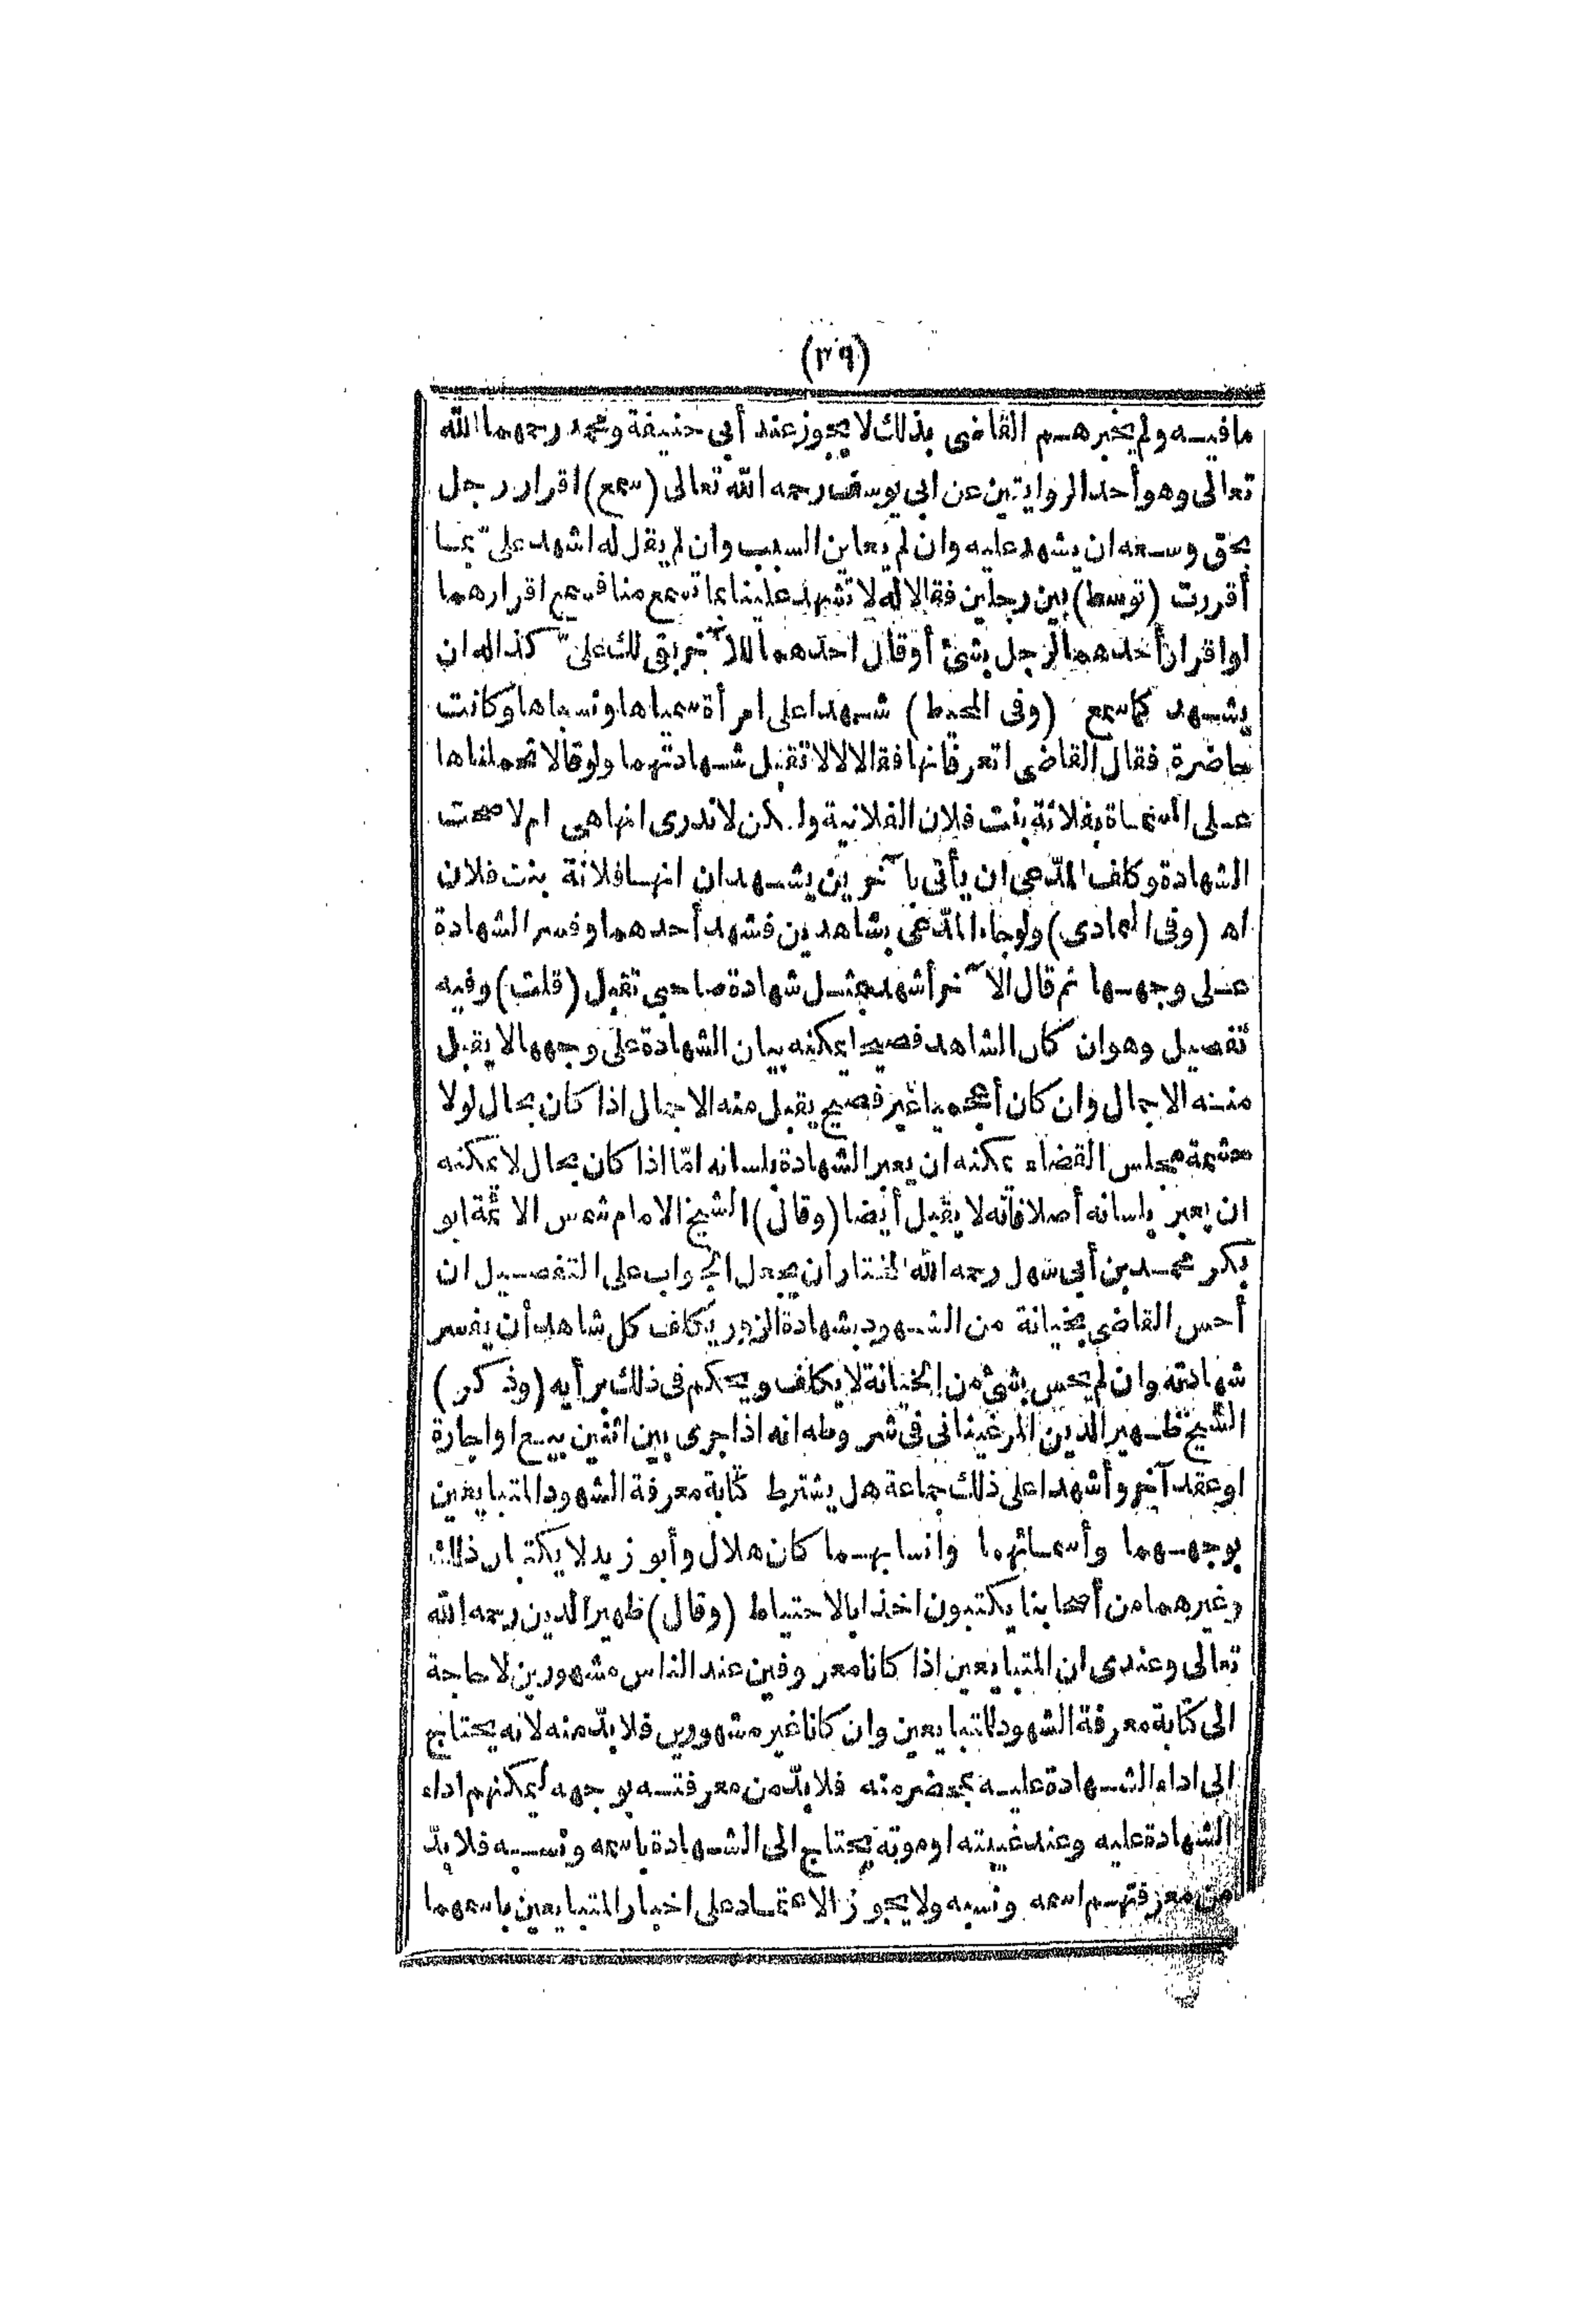 (٣٩)
مافيه ولم يخبرهم القاضى بذلك لا يجوز عند أبى حنيفة ومحمد رحمهما الله
تعالى وهو أحد الروايتين عن ابى يوسف رحمه الله تعالى (سمع) اقرار رجل
بحق وسعه ان يشهد عليه وان لم يعاين السبب وان لم يقل له اشهد علىّ بما
أقررت (توسط) بين رجلين فقالا له لا تشهد علينا بما تسمع منا فسمع اقرارهما
او اقرار أحدهما لرجل بشئ أو قال احدهما للآخر بقى لك علىّ كذا له ان
يشهد كما سمع (وفى المحيط) شهدا على امرأة سمياها ونسباها وكانت
حاضرة فقال القاضى اتعرفانها فقالا لا لا تقبل شهادتهما ولو قالا تحملناها
على المسماة بفلانة بنت فلان الفلانية ولكن لا ندرى انها هى ام لا صحت
الشهادة وكلف المدّعى ان يأتى بآخرين يشهدان انها فلانة بنت فلان
اه (وفى العمادى) ولو جاء المدّعى بشاهدين فشهد أحدهما وفسر الشهادة
على وجهها ثم قال الآخر أشهد بمثل شهادة صاحبى تقبل (قلت) وفيه
تفصيل وهو ان كان الشاهد فصيحا يمكنه بيان الشهادة على وجهها لا يقبل
منه الاجمال وان كان أعجميا غير فصيح يقبل منه الاجمال اذا كان بحال لولا
حشمة مجلس القضاء يمكنه ان يعبر الشهادة بلسانه امّا اذا كان بحال لا يمكنه
ان يعبر بلسانه أصلا فانّه لا يقبل أيضا (وقال) الشيخ الامام شمس الائمّة ابو
بكر محمد بن أبى سهل رحمه الله المختار ان يجعل الجواب على التفصيل ان
أحس القاضى بخيانة من الشهود بشهادة الزور يكلف كل شاهد أن يفسر
شهادته وان لم يحس بشئ من الخيانة لا يكلف ويحكم فى ذلك برأيه (وذكر)
الشيخ ظهير الدين المرغينانى فى شروطه انه اذا جرى بين اثنين بيع او اجارة
او عقد آخر وأشهدا على ذلك جماعة هل يشترط كتابة معرفة الشهود المتبايعين
بوجههما وأسمائهما وانسابهما كان هلال وأبو زيد لا يكتبان ذلك
وغيرهما من أصحابنا يكتبون اخذا بالاحتياط (وقال) ظهير الدين رحمه الله
تعالى وعندى ان المتبايعين اذا كانا معروفين عند الناس مشهورين لا حاجة
الى كتابة معرفة الشهود للمتبايعين وان كانا غير مشهورين فلا بدّ منه لانه يحتاج
الى اداء الشهادة عليه بمحضر منه فلا بدّ من معرفته بوجهه ليمكنهم اداء
الشهادة عليه وعند غيبته او موته يحتاج الى الشهادة باسمه ونسبه فلا بدّ
من معرفتهم اسمه ونسبه ولا يجوز الاعتماد على اخبار المتبايعين باسمهما